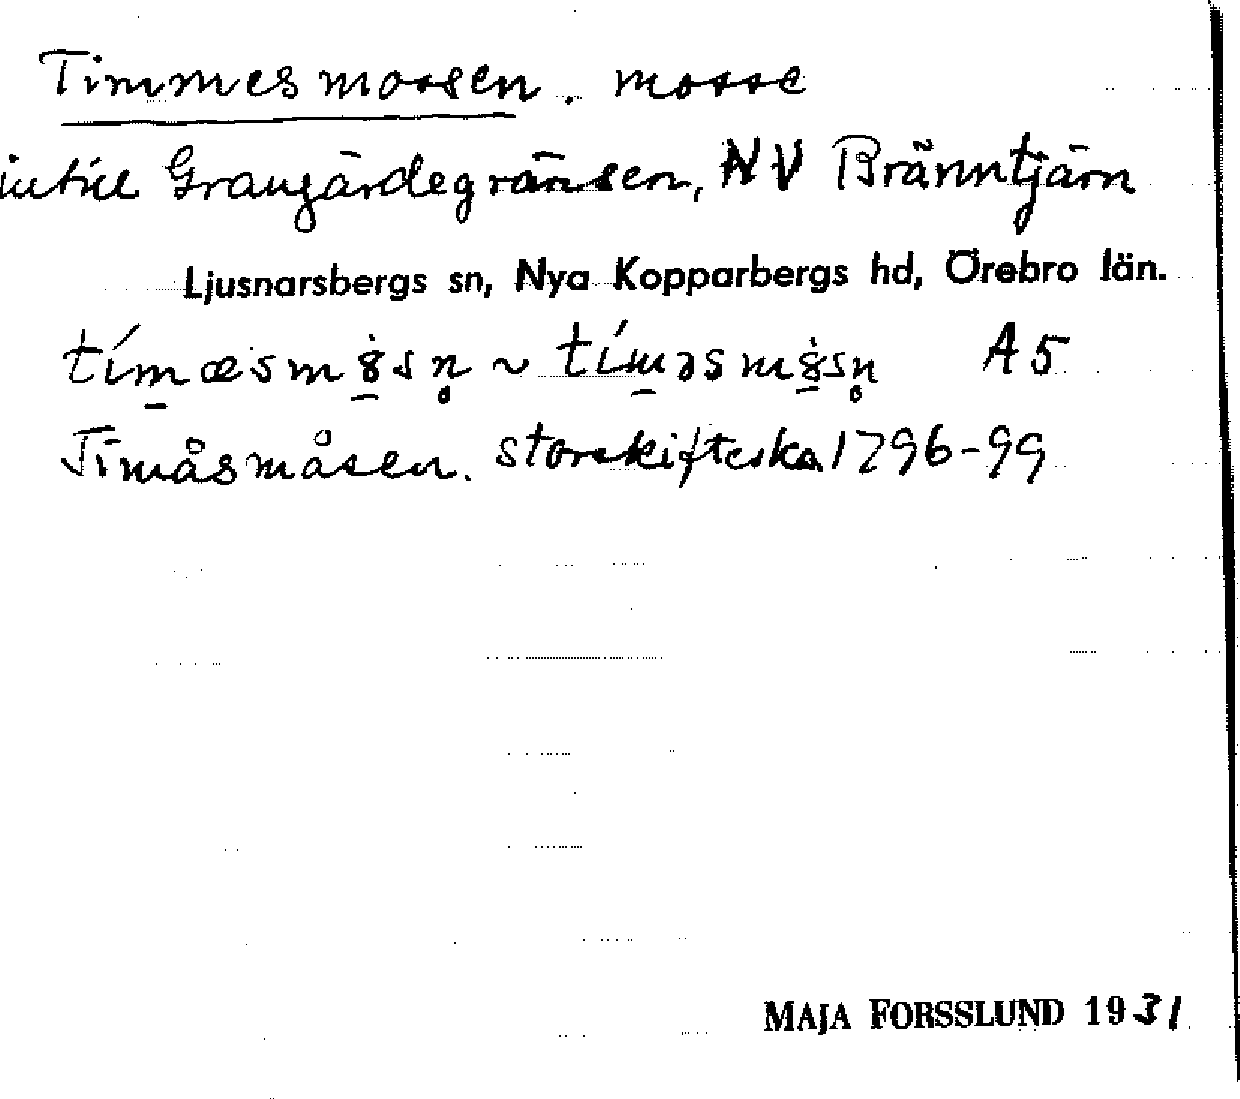 Timmesmossen. mosse
intill Grangärdegränsen, NV Bränntjärn
Ljusnarsbergs sn, Nya Kopparbergs hd, Örebro län.
A5
Timåsmåsen. Storskifteska 1796-99
MAJA FORSSLUND 1931